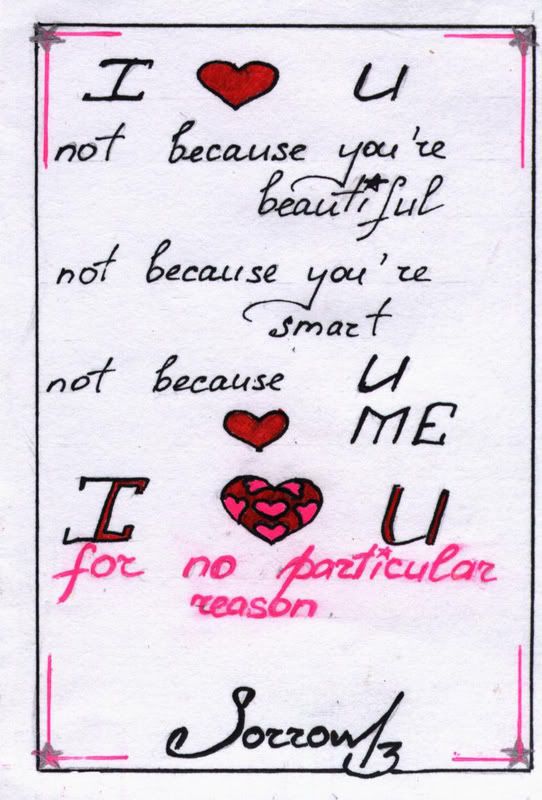 I ❤ U
not because you're
beautiful
not because you're
smart
not because U
❤ ME
I ❤ U
for no particular
reason